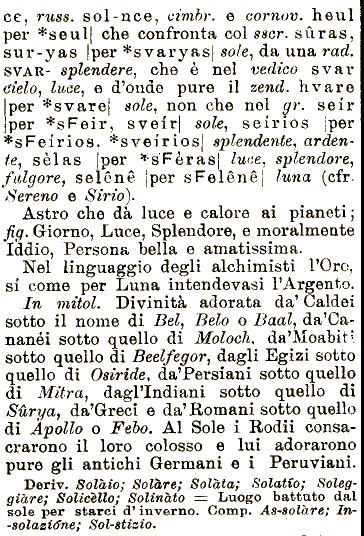 ce, russ. sol-nce, cimbr. e cornov. heul
per *seul| che confronta col sscr. sûras,
sur-yas |per *svaryas| sole, da una rad.
SVAR- splendere, che è nel vedico svar
cielo, luce, e d'onde pure il zend. hvare
|per *svare| sole, non che nel gr. seir
|per *sFeir, sveír| sole, seírios |per
*sFeírios. *sveírios| splendente, arden-
te, sèlas |per *sFèras| luce, splendore,
fulgore, selênê |per sFelênê| luna (cfr.
Sereno e Sirio).
Astro che dà luce e calore ai pianeti;
fig. Giorno, Luce, Splendore, e moralmente
Iddio, Persona bella e amatissima.
Nel linguaggio degli alchimisti l'Oro,
sí come per Luna intendevasi l'Argento.
In mitol. Divinità adorata da' Caldei
sotto il nome di Bel, Belo o Baal, da'Ca-
nanéi sotto quello di Moloch, da'Moabiti
sotto quello di Beelfegor, dagli Egizi sotto
quello di Osiride, da'Persiani sotto quello
di Mitra, dagl'Indiani sotto quello di
Sûrya, da'Greci e da'Romani sotto quello
di Apollo o Febo. Al Sole i Rodii consa-
crarono il loro colosso e lui adorarono
pure gli antichi Germani e i Peruviani.
Deriv. Solàio; Solàre; Solàta; Solatío; Soleg-
giàre; Solicèllo; Solinàto = Luogo battuto dal
sole per starci d'inverno. Comp. As-solàre; In-
-solazióne; Sol-stizio.